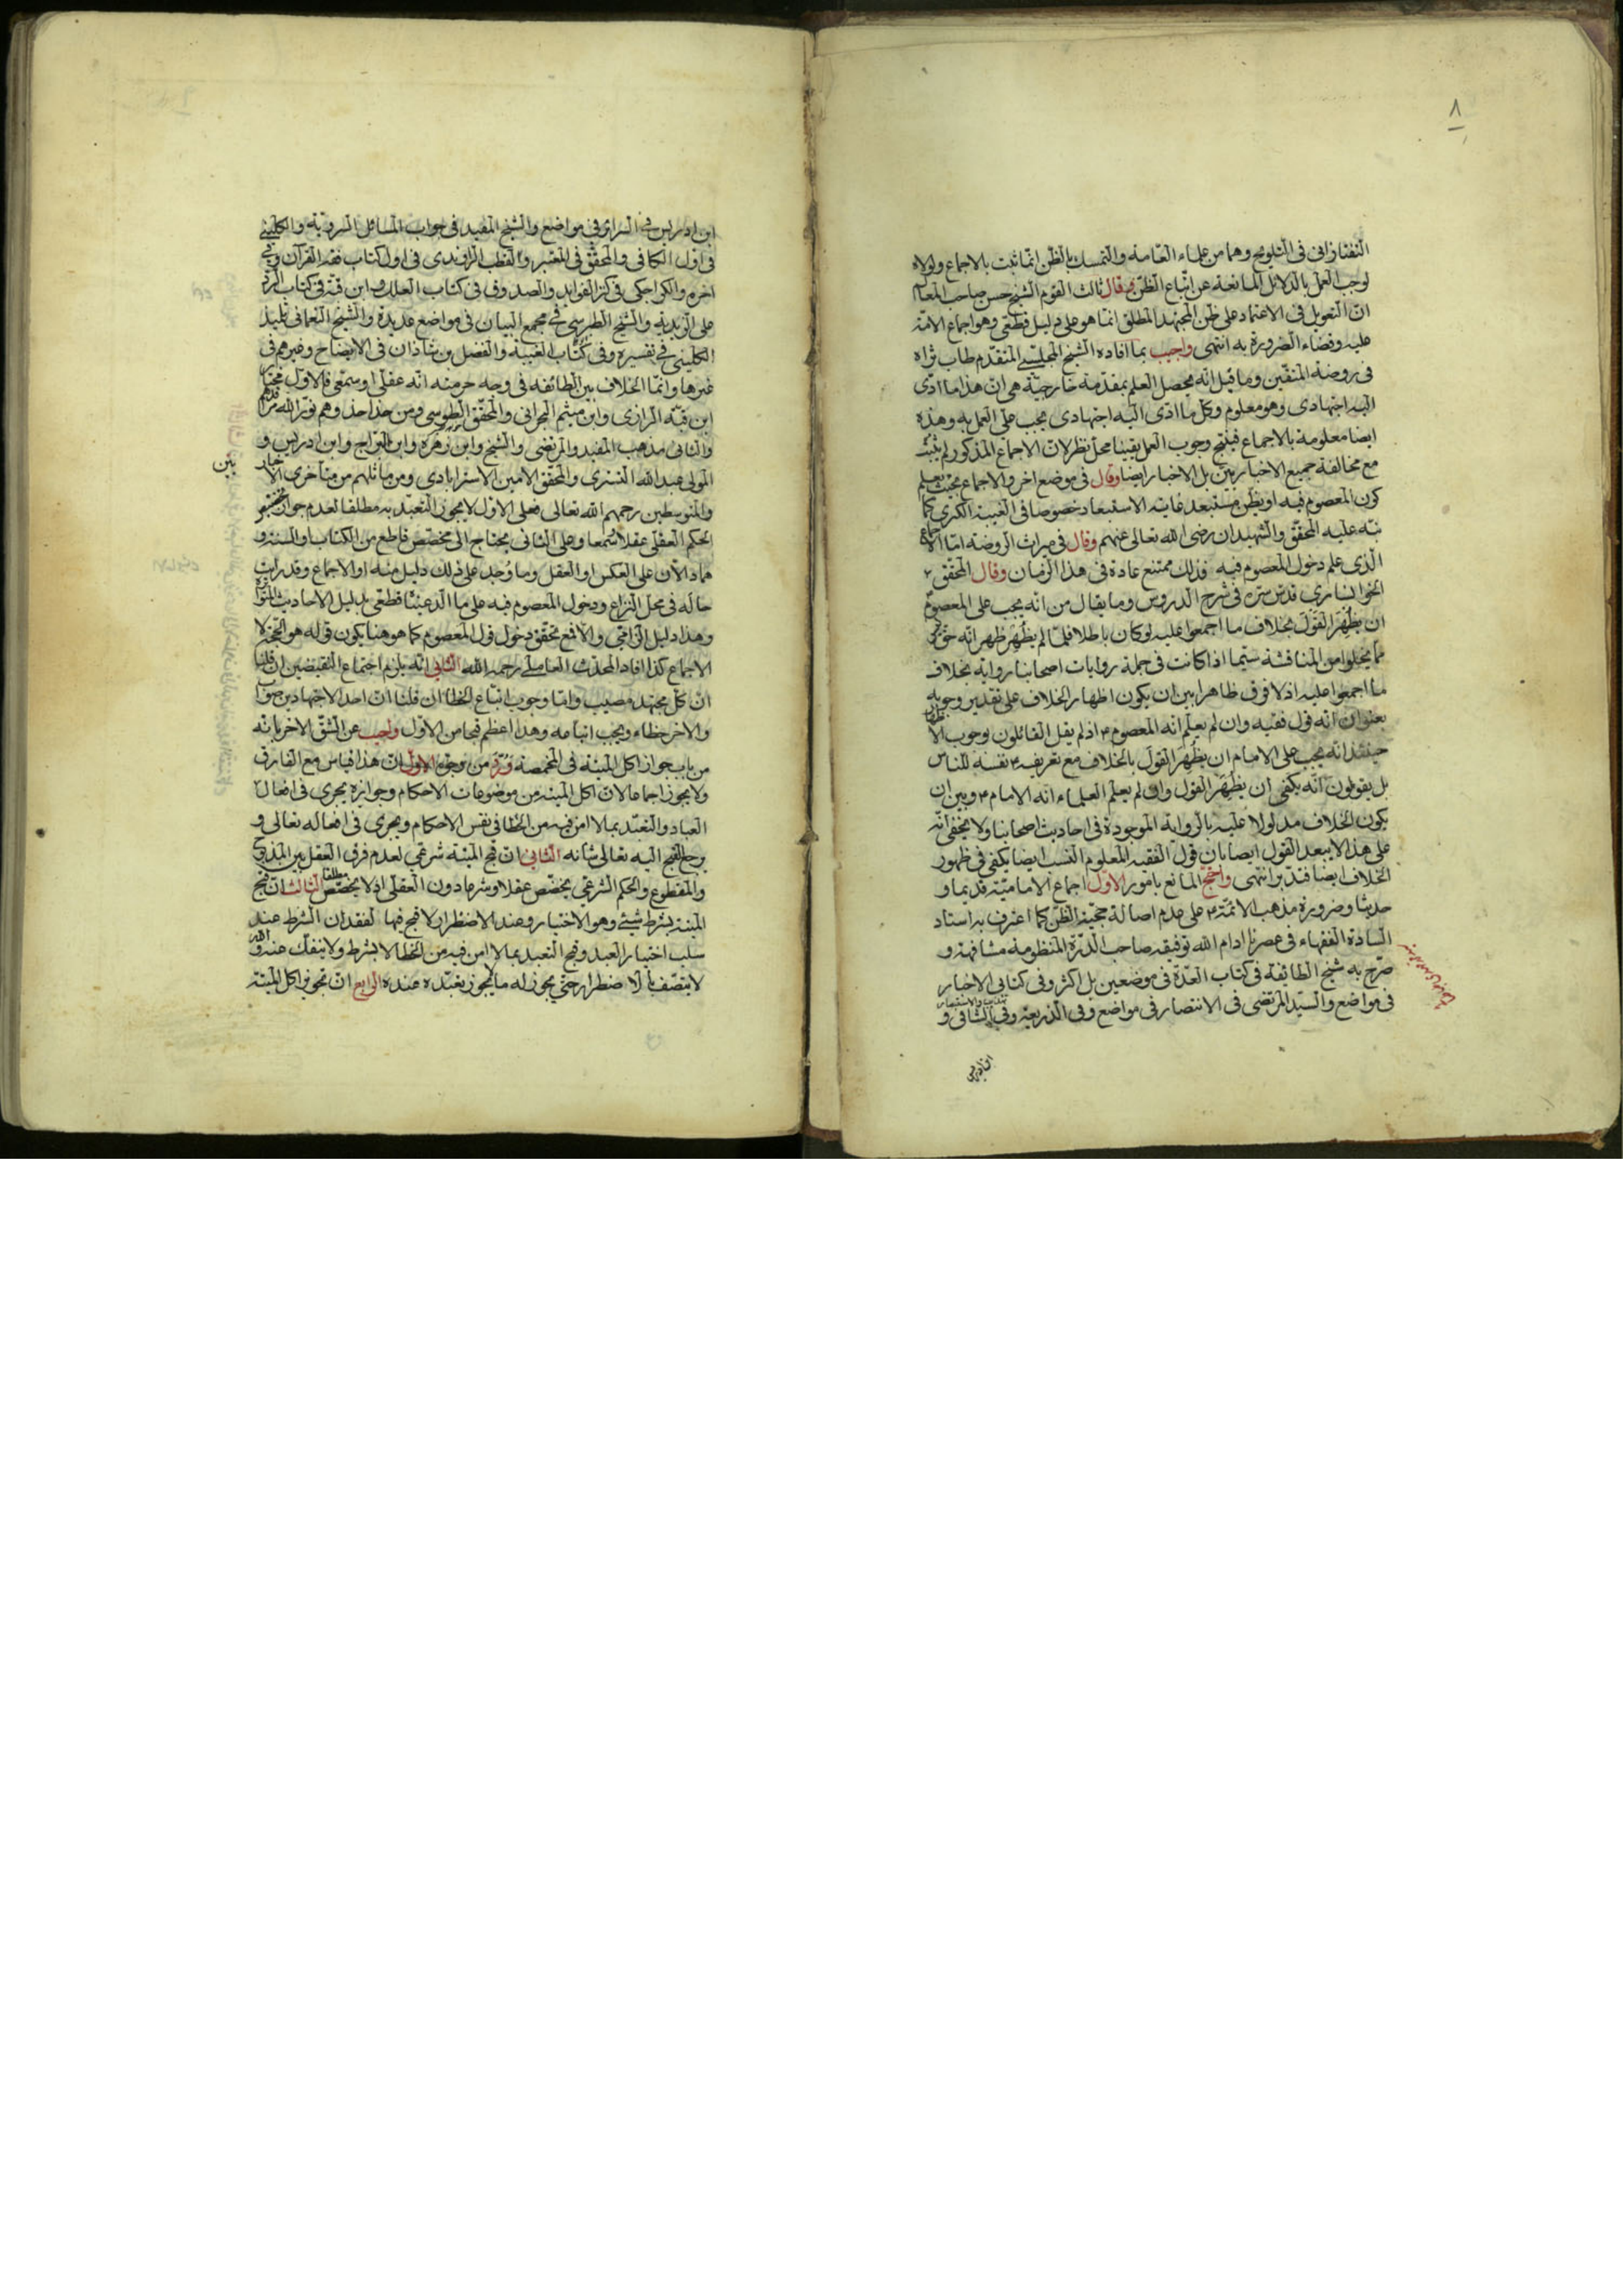 ٨
التفتازاني في التلويح وهما من علماء العامة والتمسك بالظن انما ثبت بالاجماع ولولاه
لوجب العمل بالدلائل المانعة عن اتباع الظن وقال ثالث القوم الشيخ حسن صاحب المعالم
ان التعويل في الاعتماد على ظن المجتهد المطلق انما هو على دليل قطعي وهو اجماع الامة
عليه وقضاء الضرورة به انتهى واجيب بما افاده الشيخ المجلسي المتقدم طاب ثراه
في روضة المتقين وما قيل انه يحصل العلم بمقدمة خارجية هي ان هذا ما ادى
اليه اجتهادي وهو معلوم وكل ما ادى اليه اجتهادي يجب على العمل به وهذه
ايضا معلومة بالاجماع فينتج وجوب العمل يقينا محل نظر لان الاجماع المذكور لم يثبت
مع مخالفة جميع الاخباريين بل الاخبار ايضا وقال في موضع اخر والاجماع بحيث يعلم
كون المعصوم فيه او يظن مستبعد غاية الاستبعاد خصوصا في الغيبة الكبرى كما
نبه عليه المحقق والشهيدان رضي الله تعالى عنهم وقال في ميراث الروضة اما الاجماع
الذي علم دخول المعصوم فيه فذلك ممتنع عادة في هذا الزمان وقال المحقق
الخوانساري قدس سره في شرح الدروس وما يقال من انه يجب على المعصوم
ان يظهر القول بخلاف ما اجمعوا عليه لو كان باطلا فلما لم يظهر ظهر انه حق
مما يخلوا من المناقشة سيما اذا كانت في جملة روايات اصحابنا رواية بخلاف
ما اجمعوا عليه اذ لا فرق ظاهرا بين ان يكون اظهار الخلاف على تقدير وجوبه
بعنوان انه قول فقيه وان لم يعلم انه المعصوم ع اذ لم يقل القائلون بوجوب الاظهار
حينئذ انه يجب على الامام ان يظهر القول بالخلاف مع تعريفه ع نفسه للناس
بل يقولون انه يكفي ان يظهر القول وان لم يعلم العلماء انه الامام ع وبين ان
يكون الخلاف مدلولا عليه بالرواية الموجودة في احاديث اصحابنا ولا يخفى انه
على هذا لا يبعد القول ايضا بان قول الفقيه المعلوم النسب ايضا يكفي في ظهور
الخلاف ايضا فتدبر انتهى واحتج المانع بامور الاول اجماع الامامية قديما و
حديثا وضرورة مذهب الائمة ع على عدم اصالة حجية الظن كما اعترف به استاد
السادة الفقهاء في عصرنا ادام الله توفيقه صاحب الدرة المنظومة مشافهة و
صرح به شيخ الطائفة في كتاب العدة في موضعين بل اكثر وفي كتابي الاخبار
تهذيب والاستبصار
في مواضع والسيد المرتضى في الانتصار في مواضع وفي الذريعة وفي الشافي و
ابن ادريس
ابن ادريس في السرائر في مواضع والشيخ المفيد في جواب المسائل السروية والكليني
في اول الكافي والمحقق في المعتبر والقطب الراوندي في اول كتاب فقه القرآن وفي
اخره والكراجكي في كنز الفوائد والصدوق في كتاب العلل وابن قبة في كتاب الرد
على الزيدية والشيخ الطبرسي في مجمع البيان في مواضع عديدة والشيخ النعماني تلميذ
الكليني في تفسيره وفي كتاب الغيبة والفضل بن شاذان في الايضاح وغيرهم في
غيرها وانما الخلاف بين الطائفة في وجه حرمته انه عقلي او سمعي فالاول مختار
ابن قبة الرازي وابن ميثم البحراني والمحقق الطوسي ومن حذا حذوهم نور الله مراقدهم
والثاني مذهب المفيد والمرتضى والشيخ وابن زهرة وابن البراج وابن ادريس و
المولى عبد الله التستري والمحقق الامين الاسترابادي ومن ماثلهم من متأخري الاخباريين
والمتوسطين رحمهم الله تعالى فعلى الاول لا يجوز التعبد به مطلقا لعدم جواز تخصيص
الحكم العقلي عقلا وسمعا وعلى الثاني يحتاج الى مخصص قاطع من الكتاب والسنة و
هما دالان على العكس او العقل وما وجد على ذلك دليل منه او الاجماع وقد رايت
حاله في محل النزاع ودخول المعصوم فيه على ما ادعينا قطعي بدليل الاحاديث المتواترة
وهذا دليل الواقي والا فمع تحقق دخول قول المعصوم كما هو هنا يكون قوله هو الحجة لا
الاجماع كذا افاد المحدث العاملي رحمه الله الثاني انه يلزم اجتماع النقيضين ان قلنا
ان كل مجتهد مصيب واما وجوب اتباع الخطا ان قلنا ان احد الاجتهادين صواب
والاخر خطاء ويجب اتباعه وهذا اعظم قبحا من الاول واجيب عن الشق الاخر بانه
من باب جواز اكل الميتة في المخمصة ورد من وجوه الاول ان هذا قياس مع الفارق
ولا يجوز اجماعا لان اكل الميتة من موضوعات الاحكام وجوازه يجري في افعال
العباد والتعبد بما لا امن فيه من الخطا في نفس الاحكام ويجري في افعاله تعالى و
يرجع القبح اليه تعالى شانه الثاني ان قبح الميتة شرعي لعدم فرق العقل بين المذبوح
والمقطوع والحكم الشرعي يخصص عقلا وشرعا دون العقلي اذ لا يخصص مطلقا الثالث ان قبح
الميتة بشرط شيئ وهو الاختيار وعند الاضطرار لا قبح فيها لفقدان الشرط عند
سلب اختيار العبد وقبح التعبد بما لا امن فيه من الخطا لا بشرط ولا ينفك عنه والله
لا يتصف بالاضطرار حتى يجوز له ما لا يجوز تعبده عنده الرابع ان تجويز اكل الميتة